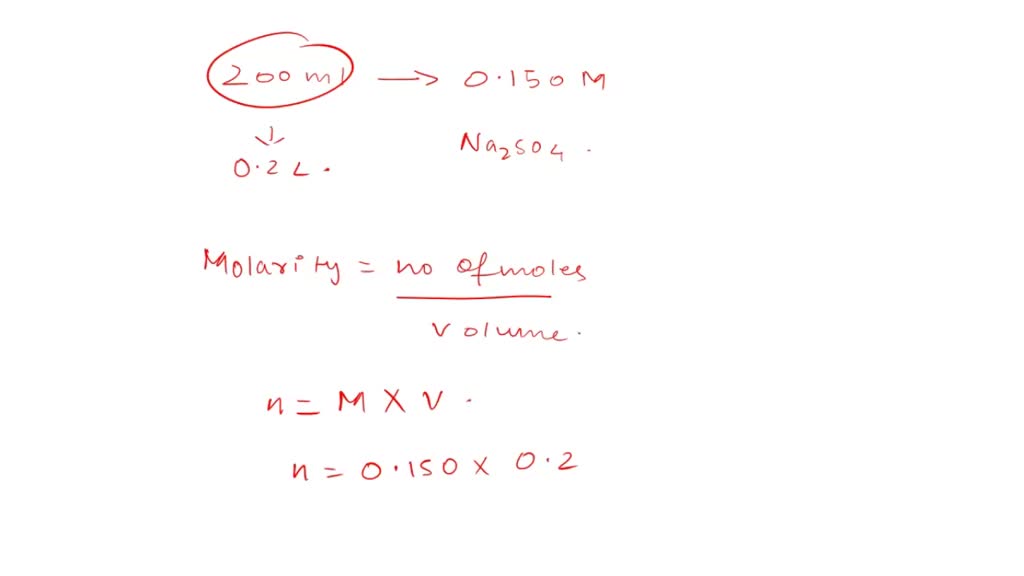 200 ml → 0.150 M
0.2 L.
Na2SO4.
Molarity = no of moles
volume.
n = M X V.
n = 0.150 x 0.2